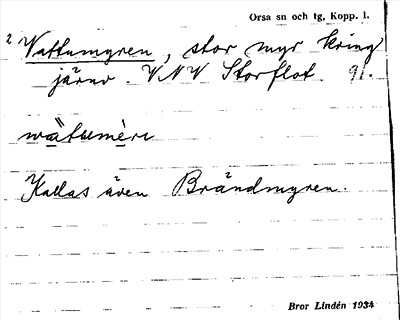 Orsa sn och tg, Kopp. l.
2 Vattumyren, stor myr kring
järnv. VNV Storflot. 91.
wä̀tumère
Kallas även Brändmyren.
Bror Lindén 1934